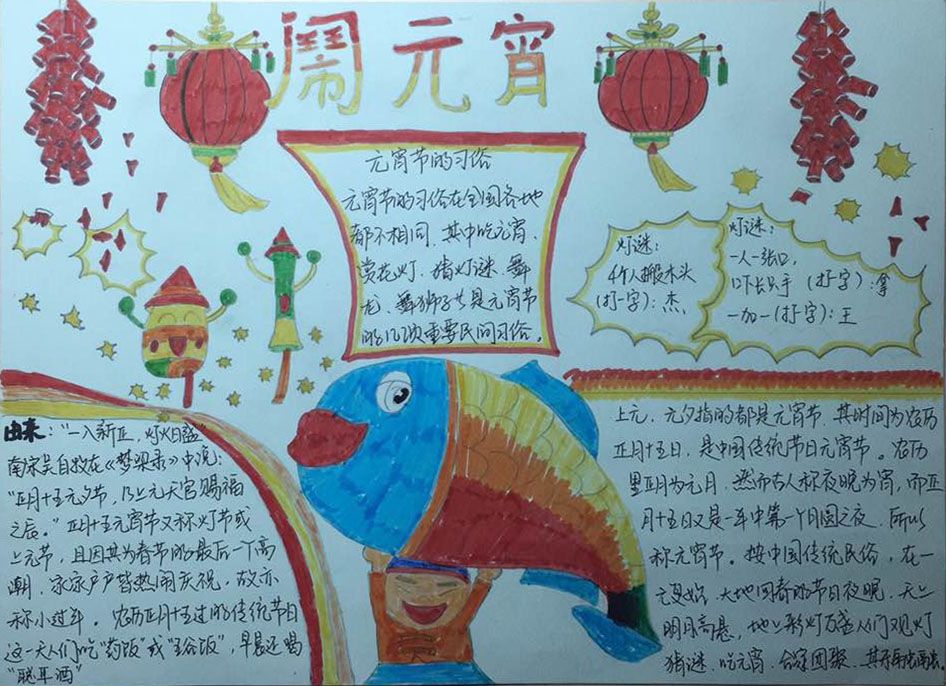 闹元宵
元宵节的习俗
元宵节的习俗在全国各地
都不相同，其中吃元宵、
赏花灯、猜灯谜、舞
龙、舞狮子等是元宵节
的几项重要民间习俗。
灯谜：
4个人搬木头
(打一字)：杰
灯谜：
一人一张口，
口下长只手（打一字）：拿
一加一(打一字)：王
由来："一入新正，灯火日盛"
南宋吴自牧在《梦梁录》中说：
"正月十五元夕节，乃上元天官赐福
之辰。"正月十五元宵节又称灯节或
上元节，且因其为春节的最后一个高
潮，家家户户皆热闹庆祝，故亦
称小过年。农历正月十五过的传统节日
这一天人们吃"药饭"或"五谷饭"，早晨还喝
"聪耳酒"
上元，元夕指的都是元宵节，其时间为农历
正月十五日，是中国传统节日元宵节。农历
里正月为元月，然而古人称夜晚为宵，而正
月十五日又是一年中第一个月圆之夜，所以
称元宵节。按中国传统民俗，在一
元复始，大地回春的节日夜晚，天上
明月高悬，地上彩灯万盏人们观灯
猜谜、吃元宵、合家团聚、其